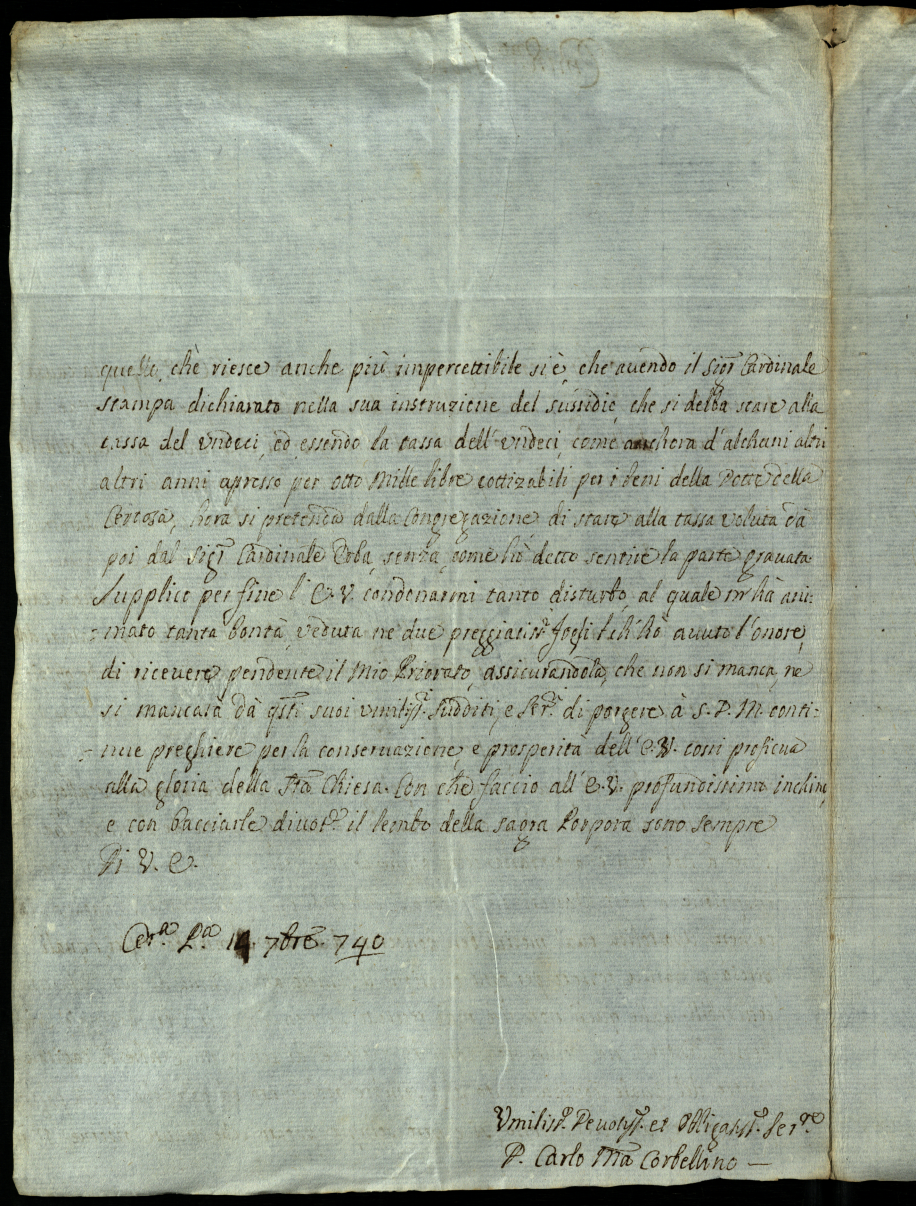 quello, chè riesce anche più impercettibile si è, che avendo il Sigr Cardinale
stampa dichiarato nella sua instruzione del sussidio, che si debba stare alla
tassa del undeci, ed essendo la tassa dell'undeci, come anchora d'alchuni altri
altri anni apresso per otto Mille libre cottizabili per i beni della Dotte della
Certosa, hora si pretenda dalla Congregazione di stare alla tassa voluta dà
poi dal Sigr Cardinale Erba, senza, come hò detto sentire la parte gravata.
Supplico per fine l'E.V. condonarmi tanto disturbo, al quale m'hà ani:
:mato tanta bontà, veduta ne due preggiatismi fogli ch'hò avuto l'onore,
di ricevere, pendente il Mio Priorato, assicurandola, che non si manca, ne
si mancarà dà qsti suoi umilismi sudditi, e Seri di porgere à S.D.M. conti:
:nue preghiere per la conservazione, e prosperità dell'E.V. cossi proficua
alla gloria della Sta Chiesa. Con che faccio all'E.V. profundissimo inchino
e con bacciarle divote il lembo della sagra Porpora sono sempre
Di V. E.
Cera Pa 14 7bre 740
Umilismo Devotismo et Obligatismo Serre
P. Carlo Ma Corbellino —